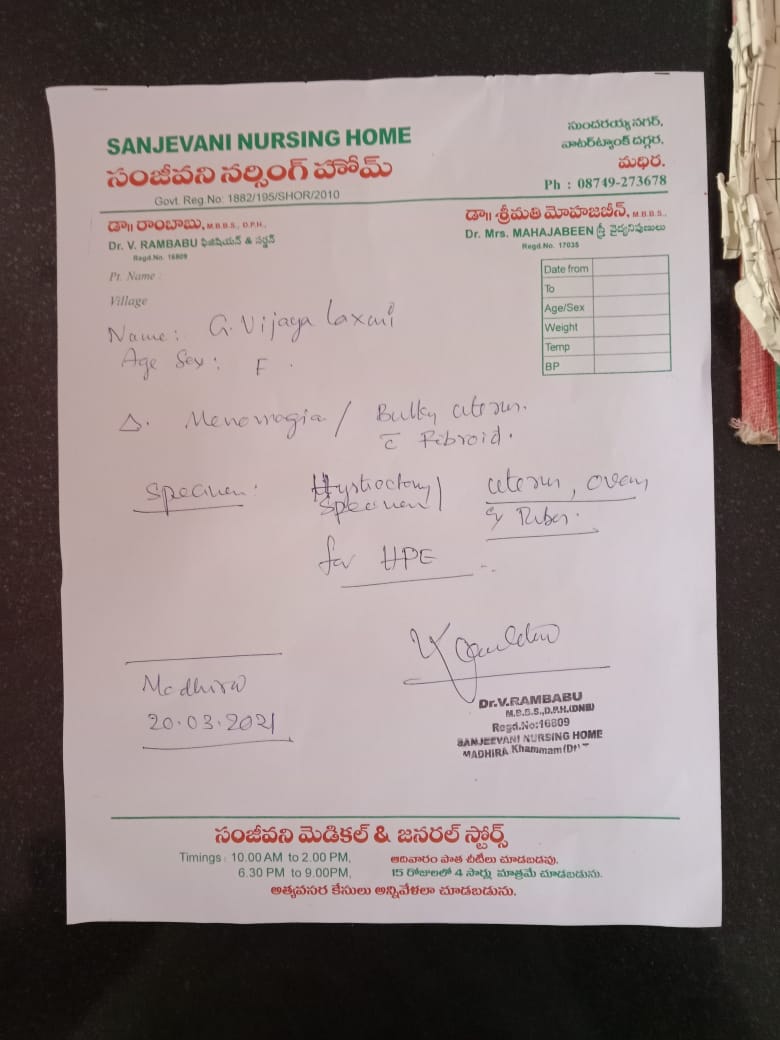 SANJEVANI NURSING HOME
సంజీవని నర్సింగ్ హోమ్
Govt. Reg.No: 1882/195/SHOR/2010
సుందరయ్య నగర్,
వాటర్‌ట్యాంక్ దగ్గర,
మధిర.
Ph : 08749-273678
డా॥ రాంబాబు, M.B.B.S., D.P.H.,
Dr. V. RAMBABU ఫిజిషియన్ & సర్జన్
Regd.No. 16809
డా॥ శ్రీమతి మోహజబీన్, M.B.B.S.,
Dr. Mrs. MAHAJABEEN స్త్రీ వైద్యనిపుణులు
Regd.No. 17035
Pt. Name :
Village
Date from
To
Age/Sex
Weight
Temp
BP
Name: G. Vijaya Laxmi
Age Sex: F.
Δ. Menorragia / Bulky uterus.
c̄ Fibroid.
Specimen: Hystrectomy Specimen / uterus, ovary
& Tubes.
for HPE
Madhira
20.03.2021
Dr.V.RAMBABU
M.B.B.S.,D.P.H.(DNB)
Regd.No:16809
SANJEEVANI NURSING HOME
MADHIRA Khammam(Dt)
సంజీవని మెడికల్ & జనరల్ స్టోర్స్
Timings : 10.00 AM to 2.00 PM,
6.30 PM to 9.00PM,
ఆదివారం పాత చీటీలు చూడబడవు.
15 రోజులలో 4 సార్లు మాత్రమే చూడబడును.
అత్యవసర కేసులు అన్నివేళలా చూడబడును.